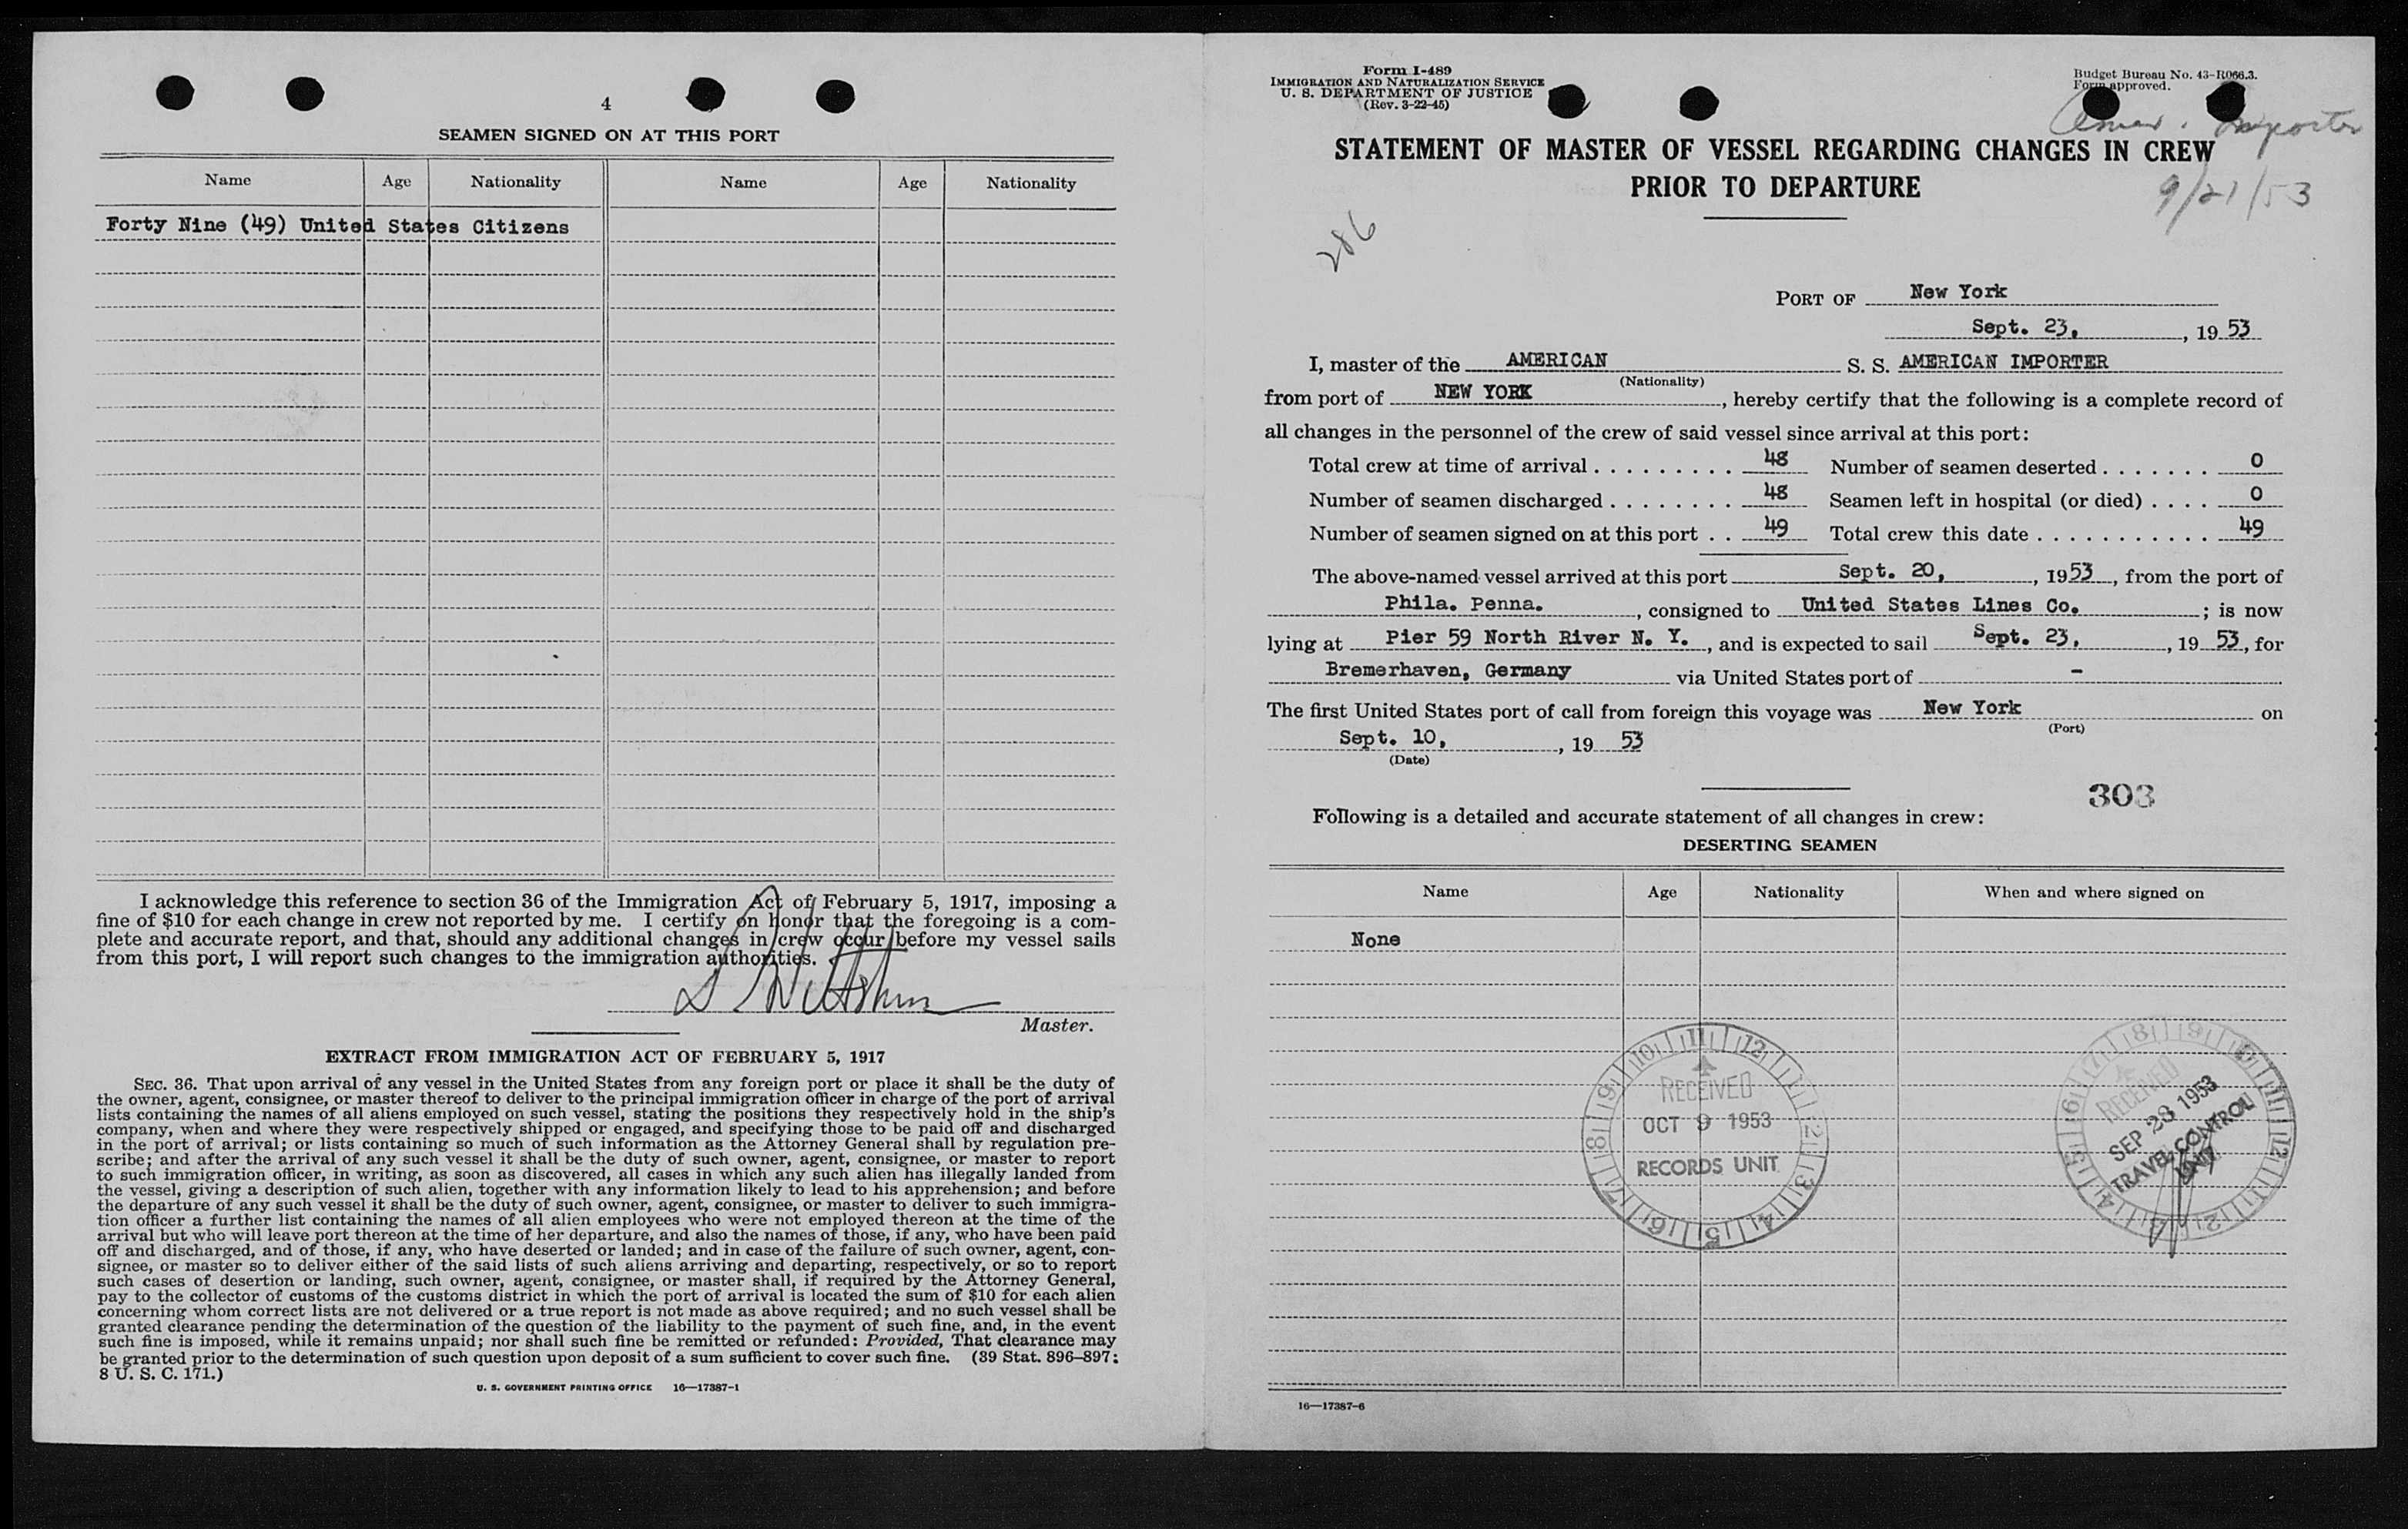 4
SEAMEN SIGNED ON AT THIS PORT
Name Age Nationality Name Age Nationality
Forty Nine (49) United States Citizens
I acknowledge this reference to section 36 of the Immigration Act of February 5, 1917, imposing a
fine of $10 for each change in crew not reported by me. I certify on honor that the foregoing is a com-
plete and accurate report, and that, should any additional changes in crew occur before my vessel sails
from this port, I will report such changes to the immigration authorities.
Master.
EXTRACT FROM IMMIGRATION ACT OF FEBRUARY 5, 1917
SEC. 36. That upon arrival of any vessel in the United States from any foreign port or place it shall be the duty of
the owner, agent, consignee, or master thereof to deliver to the principal immigration officer in charge of the port of arrival
lists containing the names of all aliens employed on such vessel, stating the positions they respectively hold in the ship's
company, when and where they were respectively shipped or engaged, and specifying those to be paid off and discharged
in the port of arrival; or lists containing so much of such information as the Attorney General shall by regulation pre-
scribe; and after the arrival of any such vessel it shall be the duty of such owner, agent, consignee, or master to report
to such immigration officer, in writing, as soon as discovered, all cases in which any such alien has illegally landed from
the vessel, giving a description of such alien, together with any information likely to lead to his apprehension; and before
the departure of any such vessel it shall be the duty of such owner, agent, consignee, or master to deliver to such immigra-
tion officer a further list containing the names of all alien employees who were not employed thereon at the time of the
arrival but who will leave port thereon at the time of her departure, and also the names of those, if any, who have been paid
off and discharged, and of those, if any, who have deserted or landed; and in case of the failure of such owner, agent, con-
signee, or master so to deliver either of the said lists of such aliens arriving and departing, respectively, or so to report
such cases of desertion or landing, such owner, agent, consignee, or master shall, if required by the Attorney General,
pay to the collector of customs of the customs district in which the port of arrival is located the sum of $10 for each alien
concerning whom correct lists are not delivered or a true report is not made as above required; and no such vessel shall be
granted clearance pending the determination of the question of the liability to the payment of such fine, and, in the event
such fine is imposed, while it remains unpaid; nor shall such fine be remitted or refunded: Provided, That clearance may
be granted prior to the determination of such question upon deposit of a sum sufficient to cover such fine. (39 Stat. 896–897;
8 U. S. C. 171.)
U. S. GOVERNMENT PRINTING OFFICE 16—17387-1
Form I-489
IMMIGRATION AND NATURALIZATION SERVICE
U. S. DEPARTMENT OF JUSTICE
(Rev. 3-22-45)
Budget Bureau No. 43-R066.3.
Form approved.
Amer. Importer
STATEMENT OF MASTER OF VESSEL REGARDING CHANGES IN CREW
PRIOR TO DEPARTURE
9/21/53
286
PORT OF New York
Sept. 23, , 19 53
I, master of the AMERICAN S. S. AMERICAN IMPORTER
(Nationality)
from port of NEW YORK , hereby certify that the following is a complete record of
all changes in the personnel of the crew of said vessel since arrival at this port:
Total crew at time of arrival . . . . . . . . . 48 Number of seamen deserted . . . . . . . 0
Number of seamen discharged . . . . . . . . 48 Seamen left in hospital (or died) . . . . 0
Number of seamen signed on at this port . . 49 Total crew this date . . . . . . . . . . . 49
The above-named vessel arrived at this port Sept. 20, , 1953 , from the port of
Phila. Penna. , consigned to United States Lines Co. ; is now
lying at Pier 59 North River N. Y. , and is expected to sail Sept. 23, , 19 53 , for
Bremerhaven, Germany via United States port of -
The first United States port of call from foreign this voyage was New York on
(Port)
Sept. 10, , 19 53
(Date)
303
Following is a detailed and accurate statement of all changes in crew:
DESERTING SEAMEN
Name Age Nationality When and where signed on
None
RECEIVED
OCT 9 1953
RECORDS UNIT
RECEIVED
SEP 28 1953
TRAVEL CONTROL
UNIT
16—17387-6